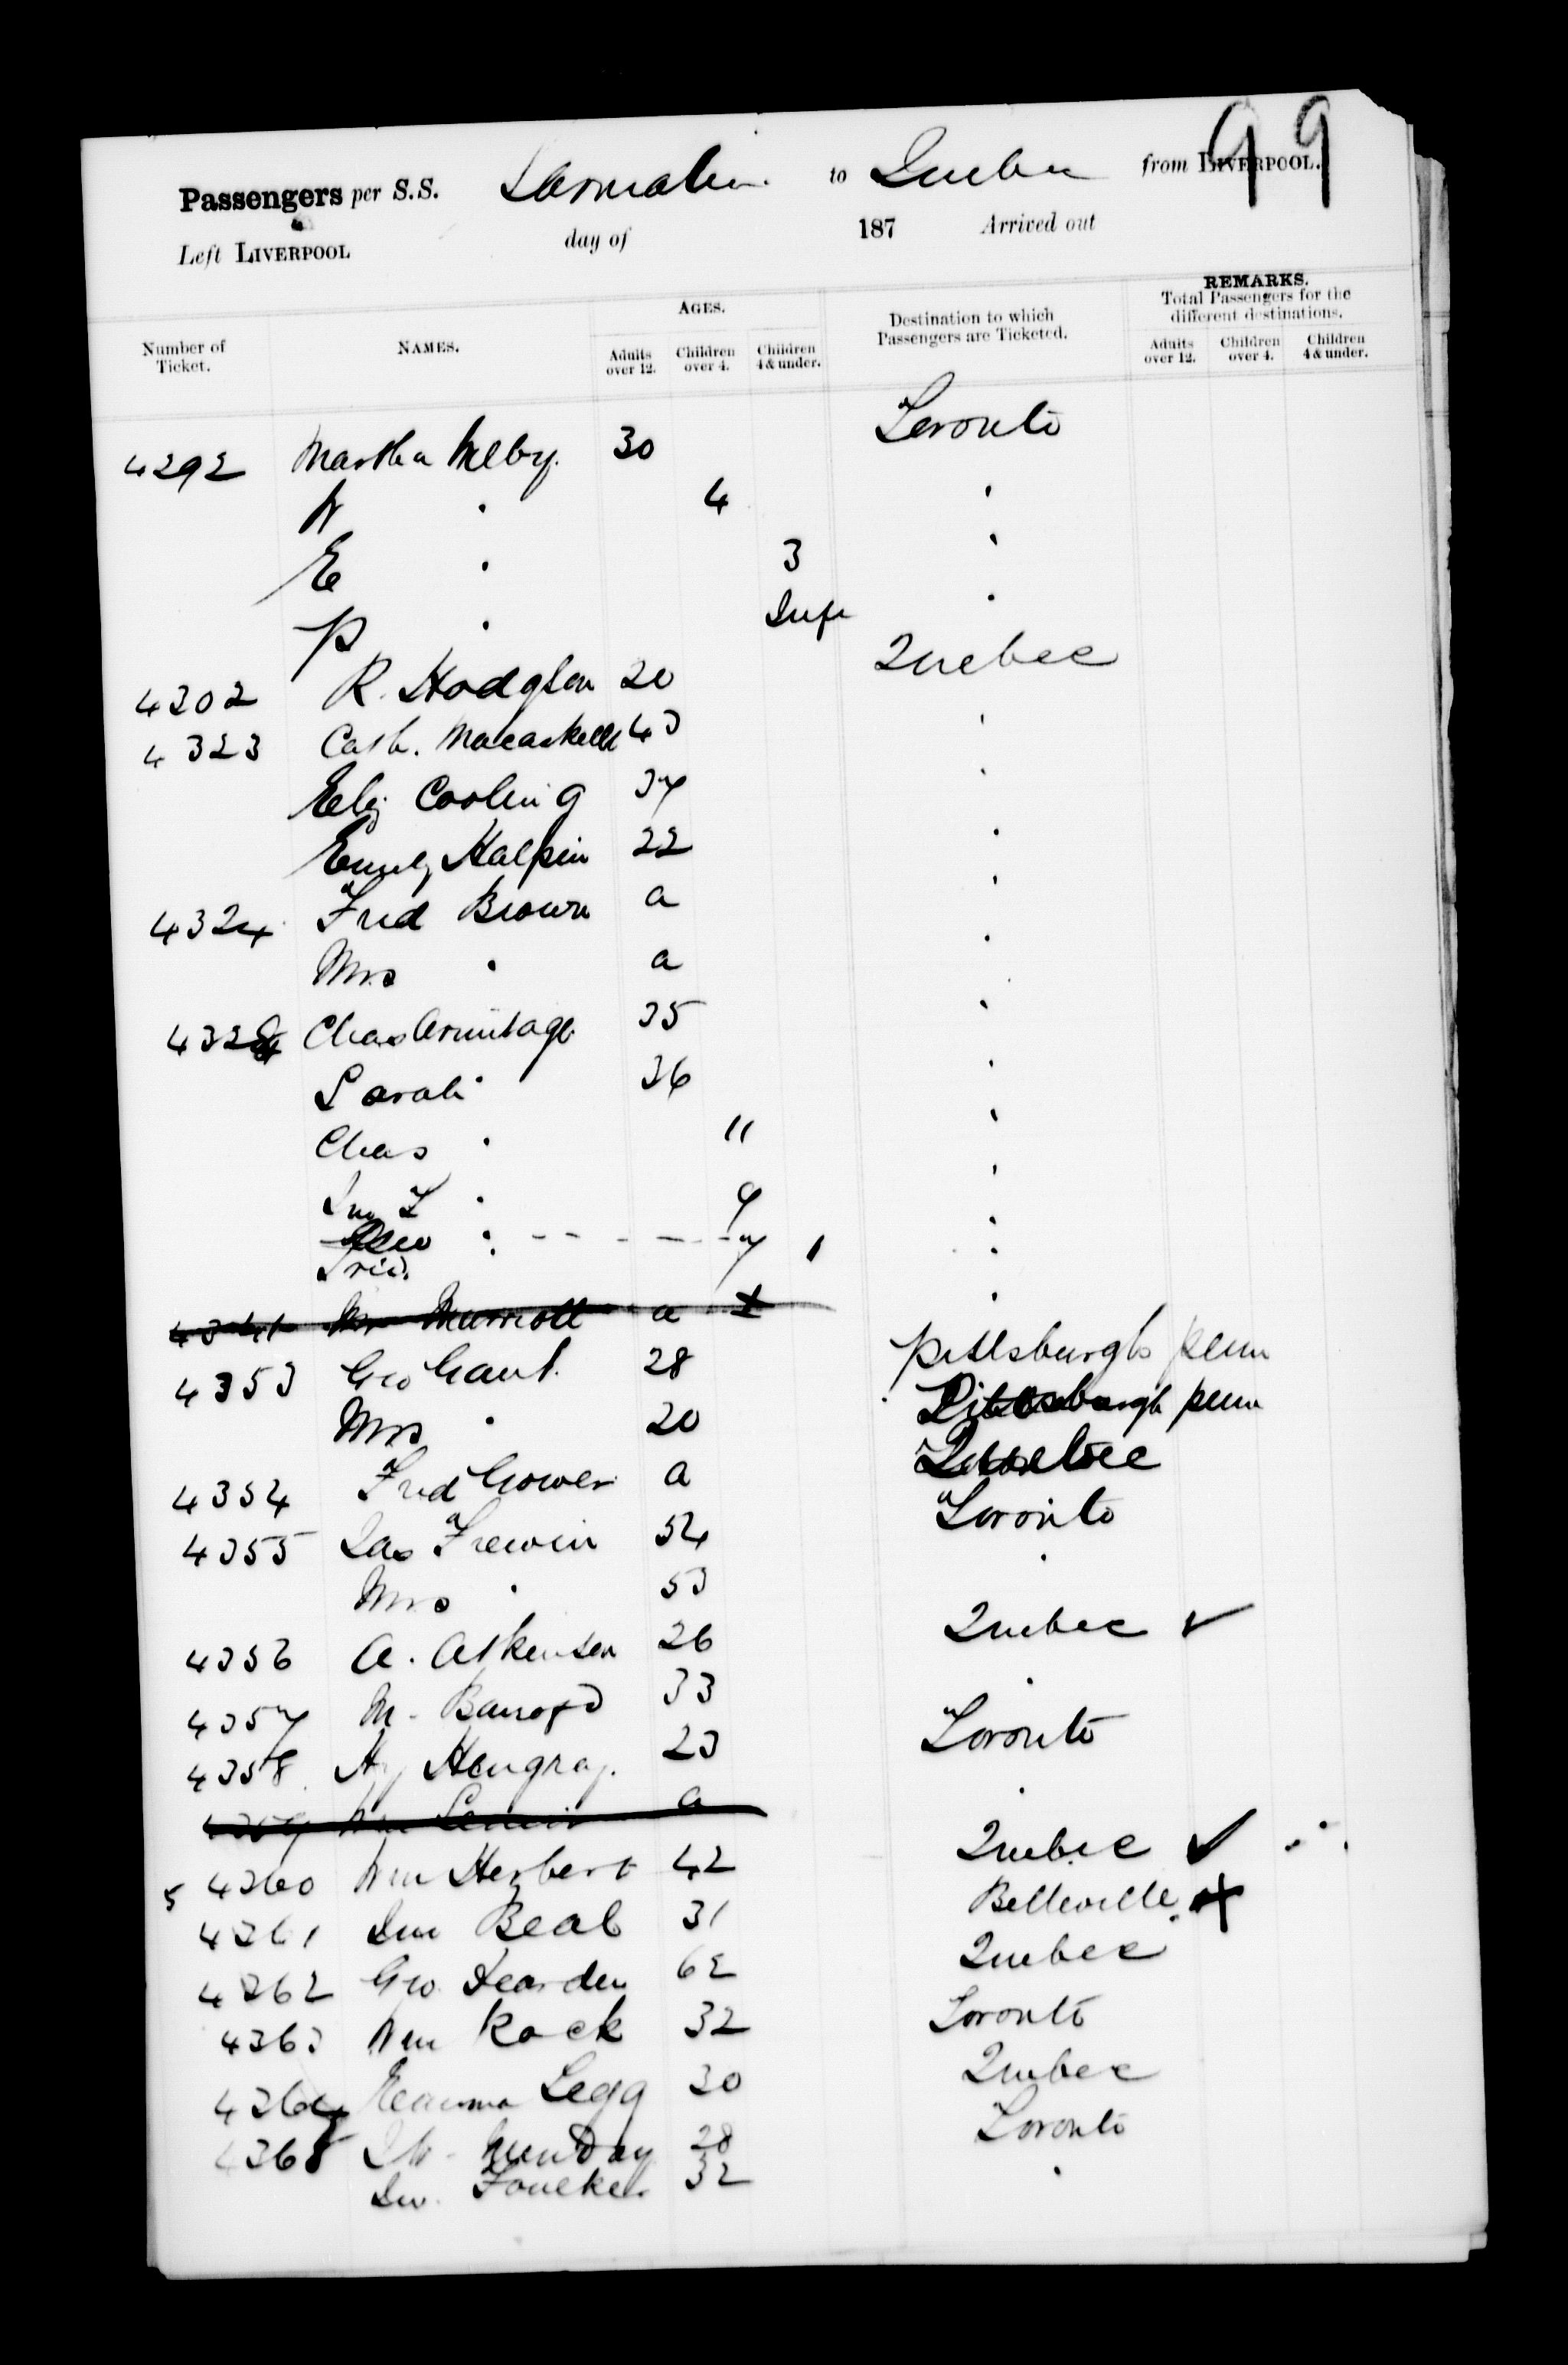 99
Passengers per S.S. Sarmatian to Quebec from LIVERPOOL.
Left LIVERPOOL day of 187 Arrived out
Number of Ticket. NAMES. AGES. Adults over 12. Children over 4. Children 4 & under. Destination to which Passengers are Ticketed. REMARKS. Total Passengers for the different destinations. Adults over 12. Children over 4. Children 4 & under.
4292 Martha Melby. 30 Toronto
W " 4 "
E " 3 "
P " Inft "
4302 R. Hodgson 20 Quebec
4323 Cath. Macaskell 43 "
Eliz Cooling 37 "
Emily Halpin 22 "
4324 Fred Brown a "
Mrs " a "
4328 Chas Armitage 35 "
Sarah " 36 "
Chas " 11 "
Jno F " 9 "
Geo " 7 "
Fred. "
4341 Mr Marriott a
4353 Geo Gant. 28 Pittsburgh penn
Mrs " 20 Pittsburgh penn
4354 Fred Gower a Quebec
4355 Jas Frewin 54 Toronto
Mrs " 53 "
4356 A. Atkinson 26 Quebec ✓
4357 M. 33 "
4358 Hy Hengray. 23 Toronto
4359 Wm a "
5 4360 Wm Herbert 42 Quebec ✓
4361 Jno Beal 31 Belleville
4362 Geo. Dearden 62 Quebec
4363 Wm Rock 32 Toronto
4364 Legg 30 Quebec
4365 Munday 28 Toronto
Jno. 32 "